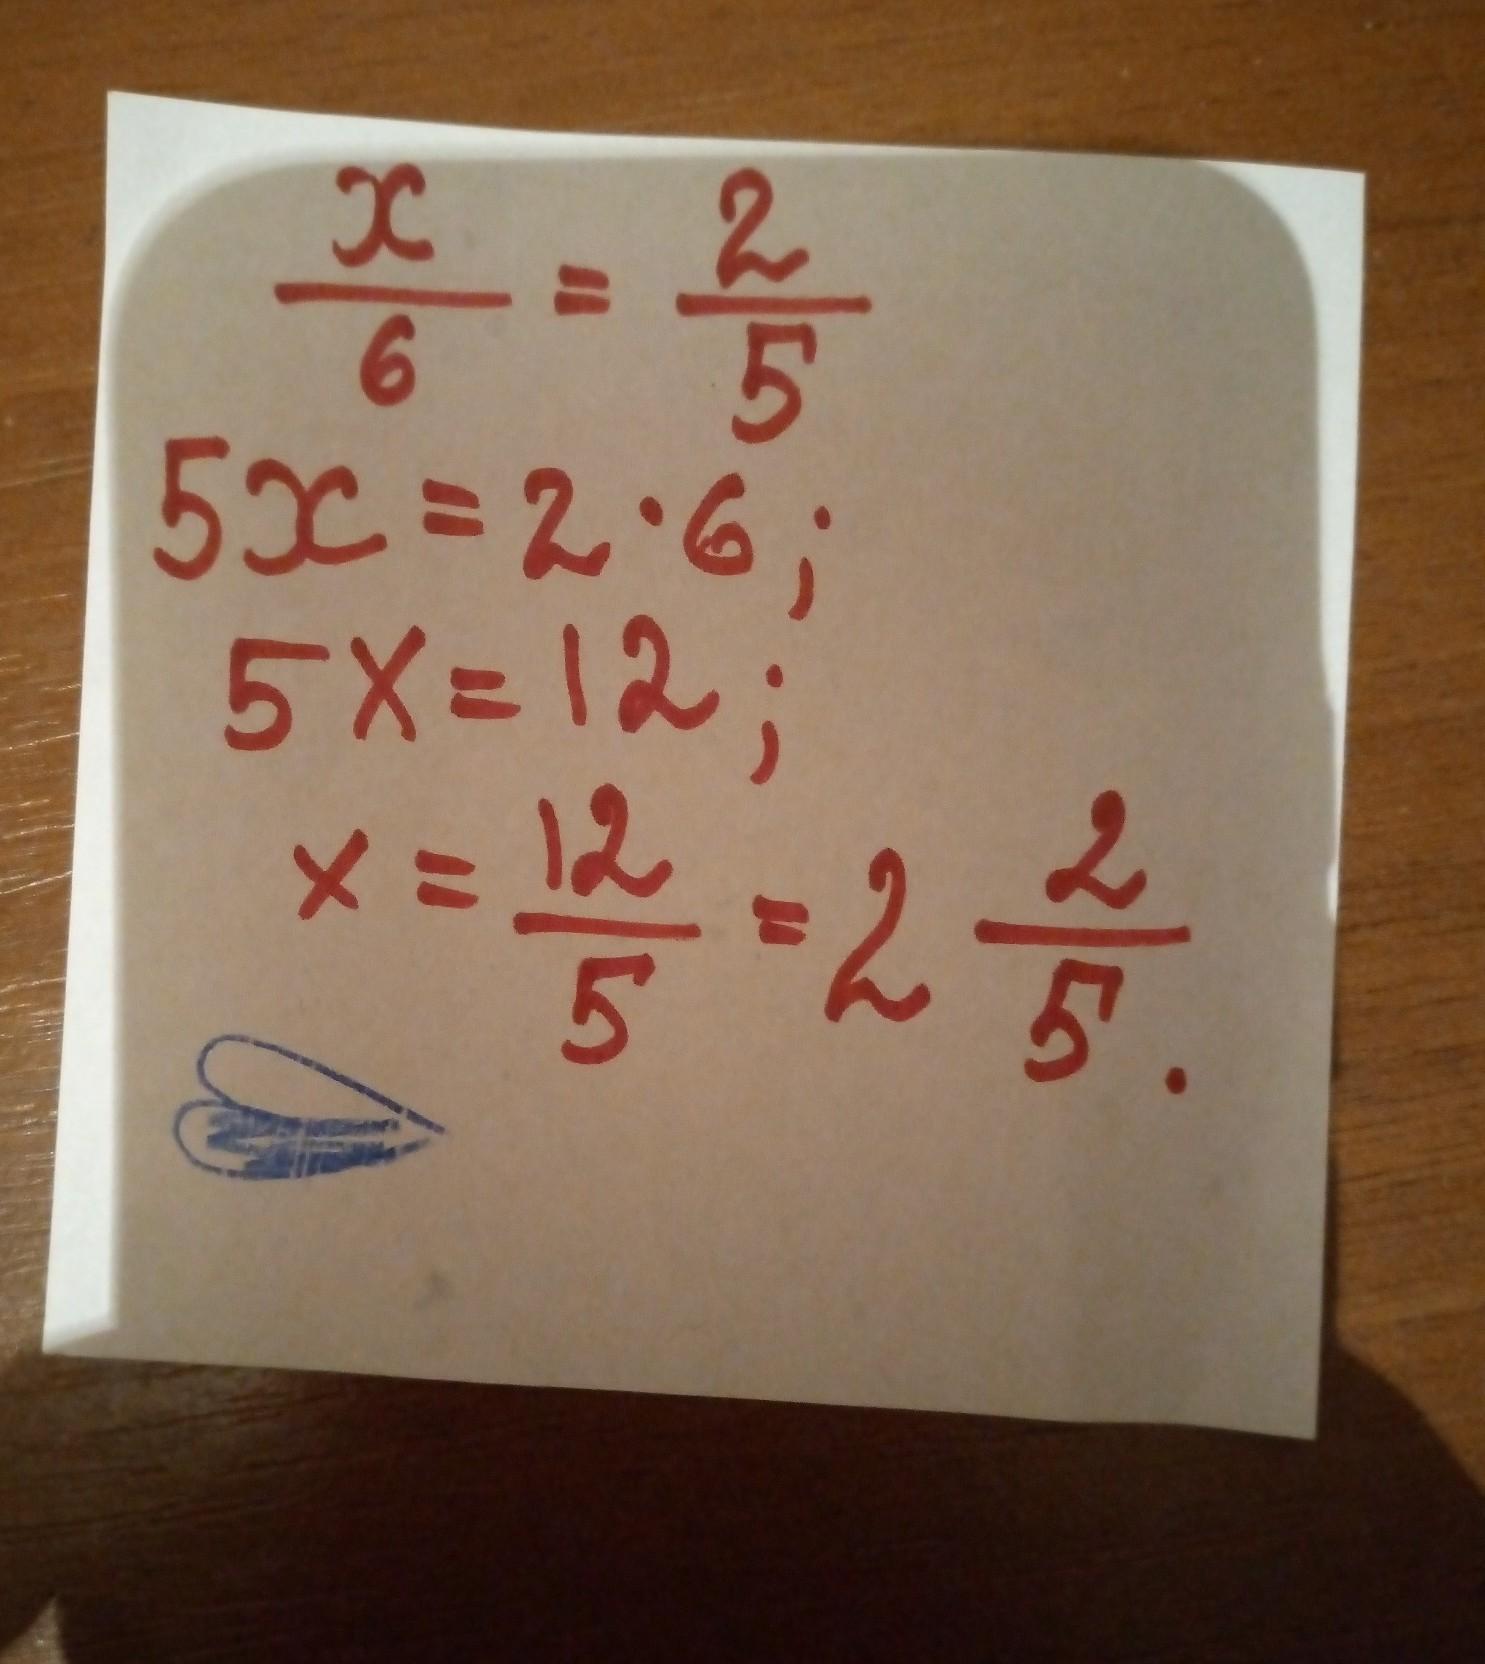 x/6 = 2/5
5x = 2·6;
5x = 12;
x = 12/5 = 2 2/5.